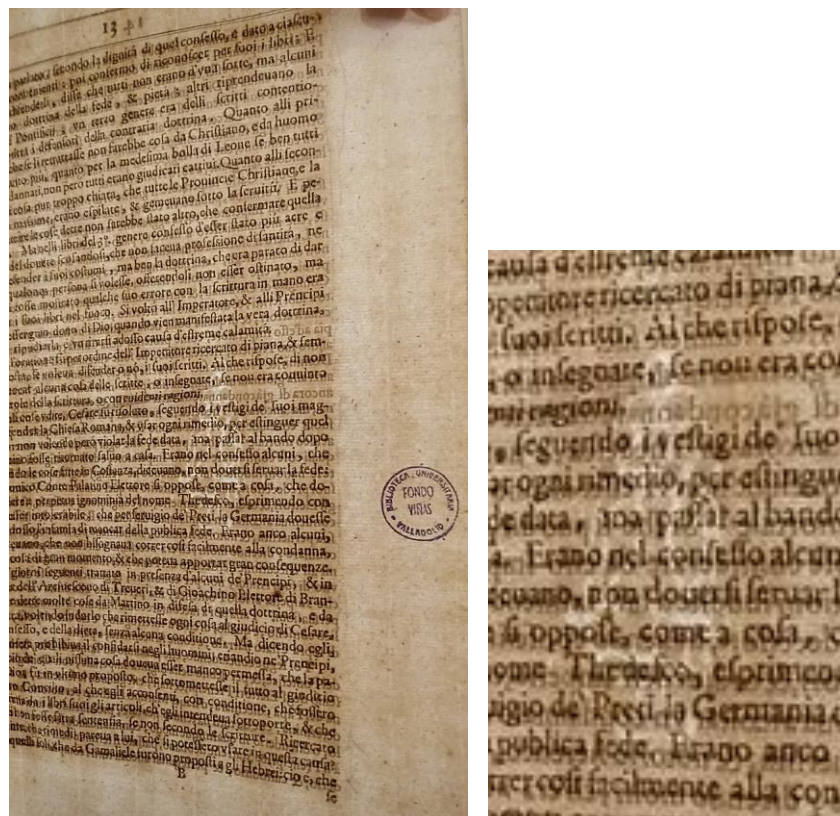 13
parlato; secondo la dignità di quel consesso, è dato a ciascu-
: poi confermò di riconoscer per suoi i libri: E
disse che tutti non erano d'vna sorte, ma alcuni
dottrina della fede, & pietà: altri riprendeuano la
Pontificij; vn terzo genere era delli scritti contentio-
i defensori della contraria dottrina. Quanto alli pri-
se li retrattasse non farebbe cosa da Christiano, e da huomo
più, quanto per la medesima bolla di Leone se ben tutti
non però tutti erano giudicati cattiui. Quanto alli secon-
cosa pur troppo chiara, che tutte le Prouincie Christiane, e la
erano espilate, & gemeuano sotto la seruitù. E pe-
le cose dette non sarebbe stato altro, che confermare quella
Ma nelli libri del 3º. genere confessò d'esser stato più acre e
del douere scusandosi, che non faceua professione di santità, ne
i suoi costumi, ma ben la dottrina, che era parato di dar
persona si volesse, offerendosi non esser ostinato, ma
mostrato qualche suo errore con la scrittura in mano era
i suoi libri nel fuoco. Si voltò all'Imperatore, & alli Prencipi
dono di Dio, quando vien manifestata la vera dottrina,
è vn tirarsi adosso causa d'estreme calamità.
l'oratione fù per ordine dell'Imperatore ricercato di piana, & sem-
se voleua difender o nò, i suoi scritti. Al che rispose, di non
alcuna cosa delle scritte, o insegnate, se non era conuinto
della scrittura, o con euidenti ragioni.
Cesare fù risoluto, seguendo i vestigi de' suoi mag-
la Chiesa Romana, & vsar ogni rimedio, per estinguer quel
non volendo però violar la fede data, ma passar al bando dopo
fosse ritornato saluo a casa. Erano nel consesso alcuni, che
le cose fatte in Costanza, diceuano, non douersi seruar la fede:
Conte Palatino Elettore si oppose, come a cosa, che do-
perpetua ignominia del nome Thedesco, esprimendo con
intolerabile, che per seruigio de' Preti la Germania douesse
l'infamia di mancar della publica fede. Erano anco alcuni,
che non bisognaua correr così facilmente alla condanna,
cosa di gran momento, & che poteua apportar gran conseguenze.
giorni seguenti trattato in presenza d'alcuni de' Prencipi, & in
dell'Arciuescouo di Treueri, & di Gioachino Elettore di Bran-
dette molte cose da Martino in difesa di quella dottrina, e da
indurlo che rimettesse ogni cosa al giudicio di Cesare,
e della dieta, senza alcuna conditione. Ma dicendo egli,
prohibiua il confidarsi negli huomini, etiandio ne' Prencipi,
quali nissuna cosa doueua esser manco permessa, che la pa-
fù in vltimo proposto, che sottomettesse il tutto al giudicio
Concilio, al che egli acconsentì, con conditione, che fossero
i libri suoi gli articoli, ch'egli intendeua sottoporre, & che
non fosse fatta sentenza, se non secondo le scritture. Ricercato
rimedij pareua a lui, che si potessero vsare in questa causa?
quelli soli, che da Gamaliele furono proposti a gli Hebrei: cioè, che
B
se
BIBLIOTECA UNIVERSITARIA
FONDO
VIÑAS
VALLADOLID